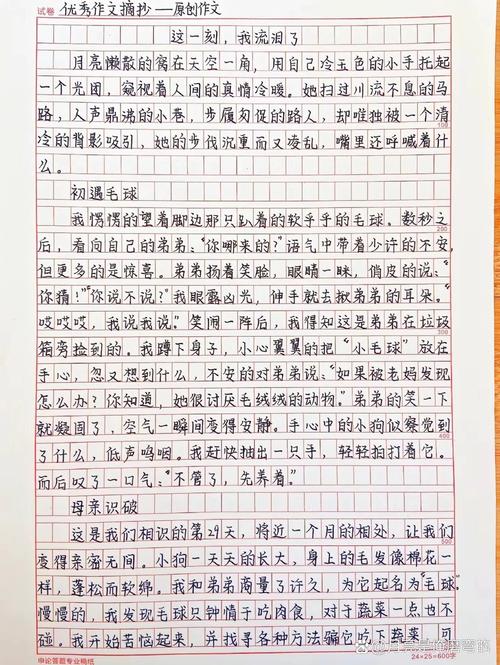 试卷 优秀作文摘抄——原创作文
这一刻，我流泪了
月亮懒散的窝在天空一角，用自己冷玉色的小手托起
一个光团，窥视着人间的真情冷暖。她扫过川流不息的马
路，人声鼎沸的小巷，步履匆促的路人，却唯独被一个清
冷的背影吸引，她的步伐沉重而又凌乱，嘴里还呼喊着什
么。
100
初遇毛球
我愣愣的望着脚边那只趴着的软乎乎的毛球。数秒之
200
后，看向自己的弟弟：“你哪来的？”语气中带着少许的不安，
但更多的是惊喜。弟弟扬着笑脸，眼睛一眯，俏皮的说：
“你猜！”“你说不说？”我眼露凶光，伸手就去揪弟弟的耳朵。
“哎哎哎，我说我说。”笑闹一阵后，我得知这是弟弟在垃圾
300
箱旁捡到的。我蹲下身子，小心翼翼的把“小毛球”放在
手心，忽又想到什么，不安的对弟弟说：“如果被老妈发现
怎么办？你知道，她很讨厌毛绒绒的动物”。弟弟的笑一下
就凝固了，空气一瞬间变得安静。手心中的小狗似察觉到
400
了什么，低声呜咽。我赶快抽出一只手，轻轻拍打着它。
而后叹了一口气：“不管了，先养着。”
母亲识破
这是我们相识的第29天，将近一个月的相处，让我们
500
变得亲密无间。小狗一天天的长大，身上的毛发像棉花一
样，蓬松而软绵。我和弟弟商量了许久，为它起名为“毛球”
慢慢的，我发现毛球只钟情于吃肉食，对于蔬菜一点也不
碰。我开始苦恼起来，并找寻各种方法骗它吃下蔬菜，可
申论答题专业稿纸 24×25=600字